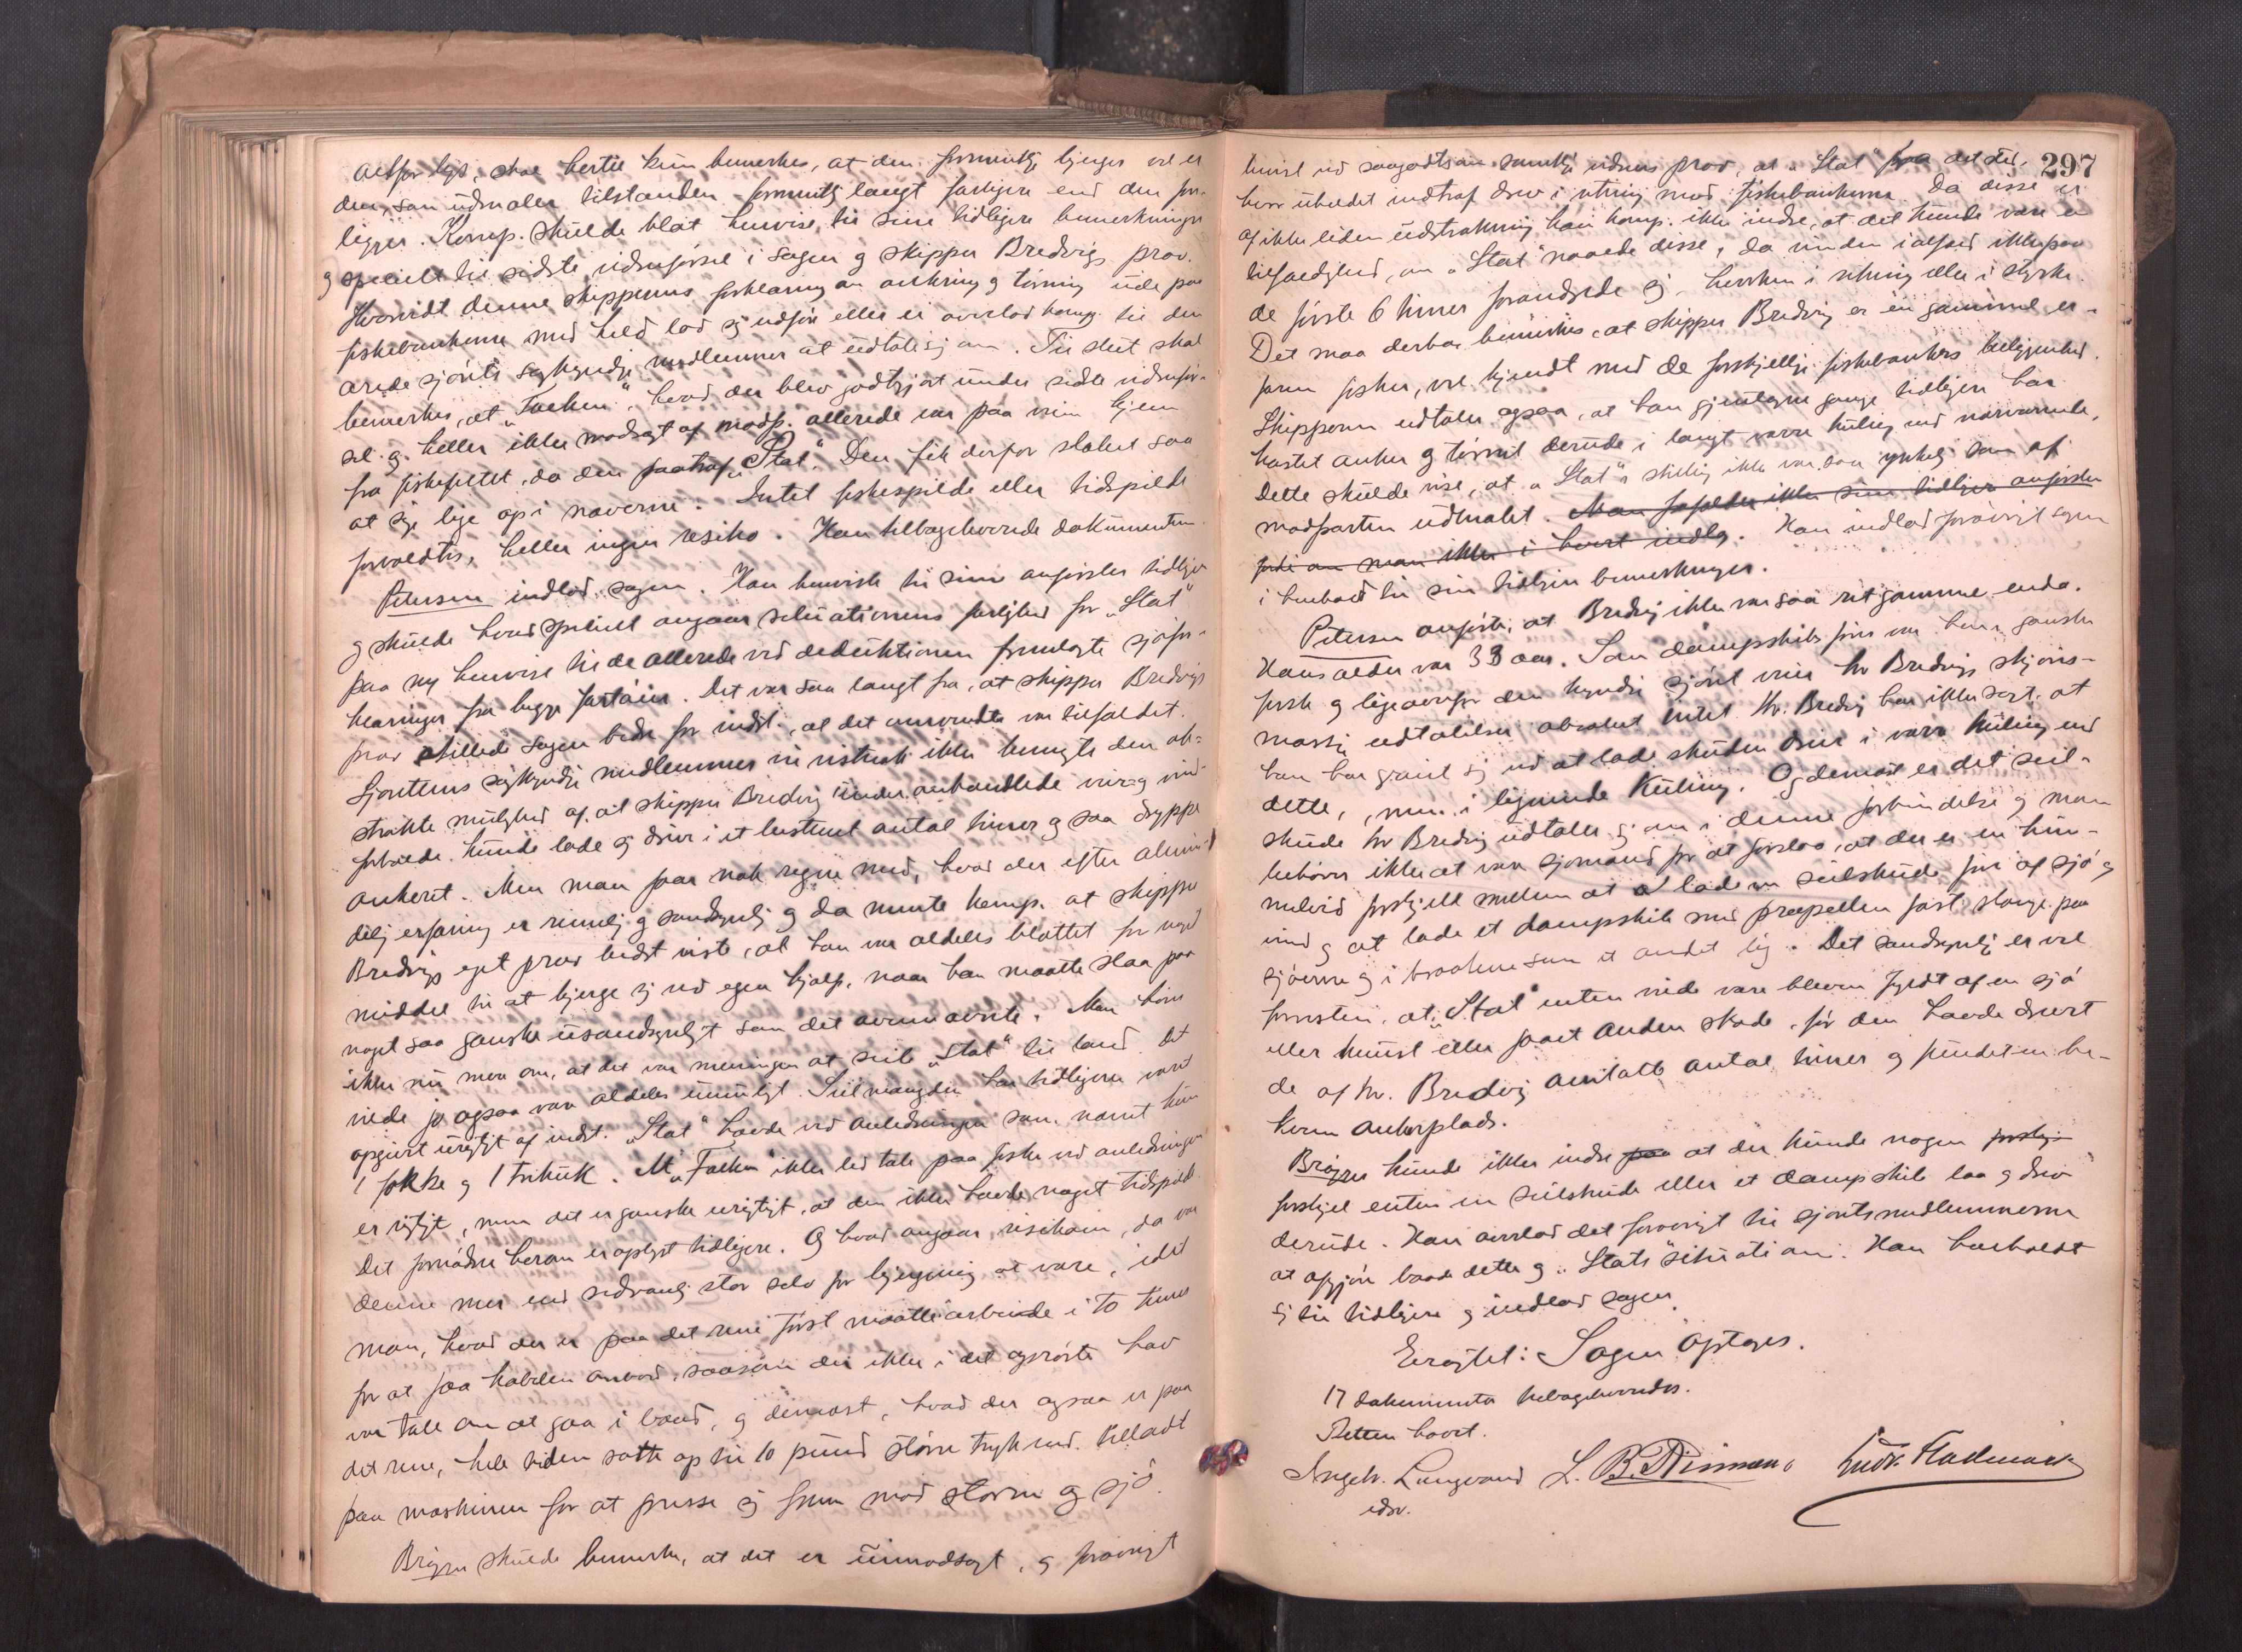 altfor lyst, skal hertil kun bemerkes, at den formentlig bjerger vel er
den, som udmaler tilstanden formentlig langt farligere end den fore-
ligger. Komp. skulde blot henvise til sine tidligere bemerkninger
og specielt til sidste vidneførsel i sagen og skipper Bredvigs prov.
Hvorvidt denne skipperens forklaring om ankring og tørning ude paa
fiskebankerne med held lod sig udføre eller ei overlod komp. til den
ærede sjørets sagkyndige medlemmer at udtale sig om. Til slut skal
bemerkes, at "Falken", hvad der blev godtgjort under sidste vidnefør-
sel og heller ikke modsagt af modp. allerede var paa vei hjem
fra fiskefeltet, da den paatraf "Stat". Den fik derfor slæbet saa
at sige lige op i næverne. Intet fiskespilde eller tidspilde
forvoldtes, heller ingen risiko. Han tilbageleverede dokumenterne.
Petersen indlod sagen. Han henviste til sine anførsler tidligere
og skulde hvad specielt angaar situationens farlighed for "Stat"
paa ny henvise til de allerede ved deduktionen fremlagte sjøfor-
klaringer fra begge fartøier. Det var saa langt fra, at skipper Bredvigs
prov stillede sagen bedre for indst., at det omvendte var tilfældet.
Sjørettens sagkyndige medlemmer vil vistnok ikke benegte den ab-
strakte mulighed af, at skipper Bredvig under omhandlede veir- og vind-
forholde kunde lade sig drive i et bestemt antal timer og saa droppe
ankeret. Men man faar nok regne med, hvad der efter almin-
delig erfaring er rimelig og sandsynlig og da mente komp. at skipper
Bredvigs eget prov bedst viste, at han var aldeles blottet for noget
middel til at bjerge sig ved egen hjælp, naar han maatte slaa paa
noget saa ganske usandsynligt som det ovennævnte. Man hører
ikke nu mer om, at det var meningen at seile "Stat" til land. Det
vilde jo ogsaa være aldeles umuligt. Seilmængden har tidligere været
opgivet urigtigt af indst. "Stat" havde ved anledningen som nævnt kun
1 fokke og 1 triseil. At "Falken" ikke led tab paa fiske ved anledningen
er rigtigt, men det er ganske urigtigt, at den ikke havde noget tidspilde.
Det fornødne herom er oplyst tidligere. Og hvad angaar risikoen, da var
denne mer end sedvanlig stor selv for bjergning at være, idet
man, hvad der er paa det rene først maatte arbeide i to timer
for at faa kabelen ombord, saasom der ikke i det oprørte hav
var tale om at gaa i baad, og dernæst, hvad der ogsaa er paa
det rene, hele tiden satte op til 10 pund større tryk end tilladt
paa maskinen for at presse sig frem mod storm og sjø.
Brøgger skulde bemerke, at det er uimodsagt, og forøvrigt
297
bevist ved saagodtsom samtlige vidners prov, at "Stat" paa det sted,
hvor uheldet indtraf drev i retning mod fiskebankerne. Da disse er
af ikke liden udstrækning kan komp. ikke indse, at det kunde være en
tilfældighed, om "Stat" naaede disse, da vinden ialfald ikke paa
de første 6 timer forandrede sig, hverken i retning eller i styrke.
Det maa derhos bemerkes, at skipper Bredvig er en gammel er-
faren fisker, vel kjendt med de forskjellige fiskebankers beliggenhed.
Skipperen udtaler ogsaa, at han gjentagne gange tidligere har
kastet anker og tørnet derude i langt værre kuling end nærværende.
Dette skulde vise, at "Stat"s stilling ikke var saa ynkelig som af
modparten udmalet. Man frafalder ikke sine tidligere anførsler
fordi om man ikke i hvert indlæg. Han indlod forøvrigt sagen
i henhold til sine tidligere bemerkninger.
Petersen anførte, at Bredvig ikke var saa ret gammel enda.
Hans alder var 33 aar. Som dampskibsfører var han ganske
fersk og ligeoverfor den kyndige sjøret veier hr Bredvigs skjøns-
mæssige udtalelser absolut intet. Hr. Bredvig har ikke sagt, at
han har greiet sig ved at lade skuden drive i værre kuling end
dette, men i lignende kuling. Og dernæst er det seil-
skude hr Bredvig udtaler sig om i denne forbindelse og man
behøver ikke at være sjømand for at forstaa, at der er en him-
melvid forskjell mellem at lade en seilskude fore af sjø og
vind og at lade et dampskib med propellen fast slænge paa
sjøerne og i braatene som et andet lig. Det sandsynlige er vel
forresten, at "Stat" enten vilde være bleven fyldt af en sjø
eller knust eller faaet anden skade, før den havde drevet
de af hr. Bredvig omtalte antal timer og fundet en be-
kvem ankerplads.
Brøgger kunde ikke indse paa at der kunde nogen forskj
forskjel enten en seilskude eller et dampskib laa og drev
derude. Han overlod det forøvrigt til sjøretsmedlemmerne
at afgjøre baade dette og "Stats" situation. Han henholdt
sig til tidligere og indlod sagen.
Eragtet: Sagen optages.
17 dokumenter tilbageleveredes.
Retten hævet.
Ingebr. Langvand L. B. Nissen
edsv.